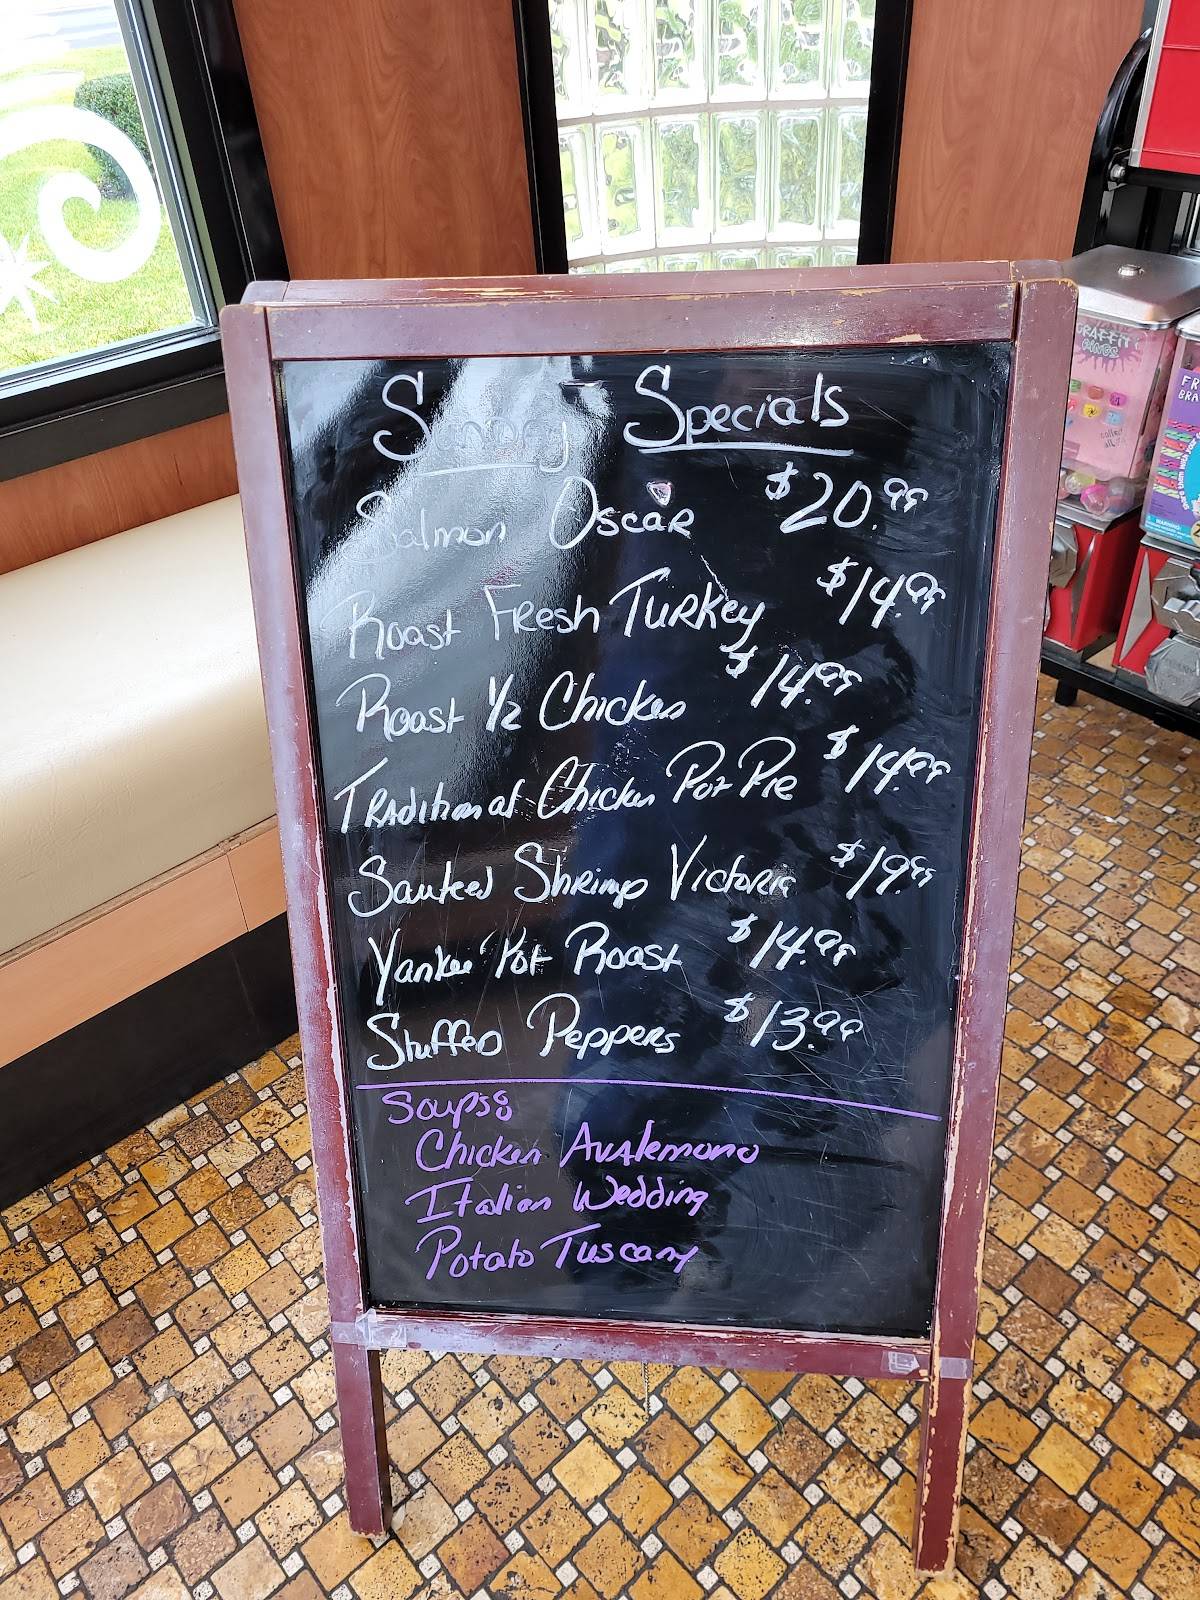 Sunday Specials
Salmon Oscar $20.99
Roast Fresh Turkey $14.99
Roast 1/2 Chicken $14.99
Traditional Chicken Pot Pie $14.99
Sauteed Shrimp Victoria $19.99
Yankee Pot Roast $14.99
Stuffed Peppers $13.99
Soups:
Chicken Avalemono
Italian Wedding
Potato Tuscany
GRAFFITI
RINGS
collect
all
FR
BRA
WARNING: